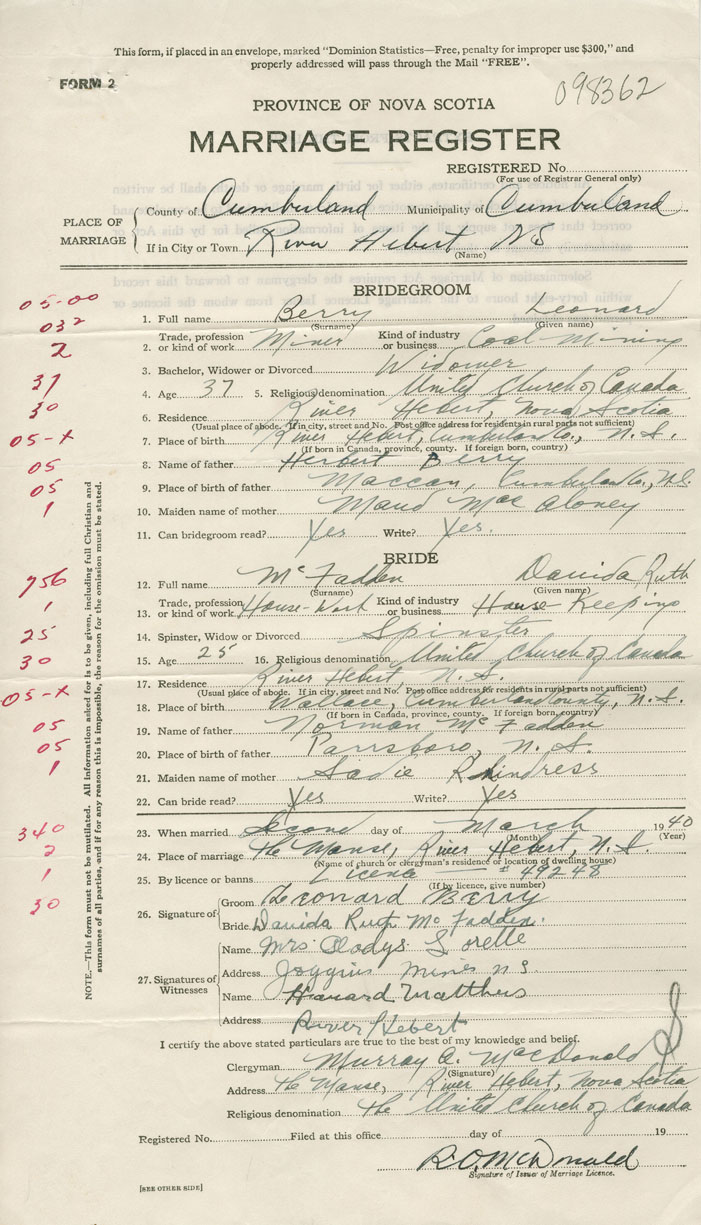 This form, if placed in an envelope, marked "Dominion Statistics—Free, penalty for improper use $300," and
properly addressed will pass through the Mail "FREE".
FORM 2
098362
PROVINCE OF NOVA SCOTIA
MARRIAGE REGISTER
REGISTERED No.
(For use of Registrar General only)
PLACE OF MARRIAGE
County of Cumberland Municipality of Cumberland
If in City or Town River Hebert NS
(Name)
BRIDEGROOM
05-00
1. Full name Berry Leonard
(Surname) (Given name)
032
2. Trade, profession or kind of work Miner Kind of industry or business Coal Mining
2
3. Bachelor, Widower or Divorced Widower
37
4. Age 37 5. Religious denomination United Church of Canada
30
6. Residence River Hebert, Nova Scotia
(Usual place of abode. If in city, street and No. Post office address for residents in rural parts not sufficient)
05-X
7. Place of birth River Hebert, Cumberland Co., N.S.
(If born in Canada, province, county. If foreign born, country)
05
8. Name of father Herbert Berry
05
9. Place of birth of father Maccan, Cumberland Co., N.S.
1
10. Maiden name of mother Maud Mac Aloney
11. Can bridegroom read? Yes Write? Yes.
BRIDE
756
12. Full name McFadden Davida Ruth
(Surname) (Given name)
1
13. Trade, profession or kind of work House-Work Kind of industry or business House Keeping
25
14. Spinster, Widow or Divorced Spinster
30
15. Age 25 16. Religious denomination United Church of Canada
17. Residence River Hebert, N.S.
(Usual place of abode. If in city, street and No. Post office address for residents in rural parts not sufficient)
05-X
18. Place of birth Wallace, Cumberland County, N.S.
(If born in Canada, province, county. If foreign born, country)
05
19. Name of father Norman McFadden
05
20. Place of birth of father Parrsboro, N.S.
1
21. Maiden name of mother Sadie
22. Can bride read? Yes Write? Yes
340
23. When married Second day of March 1940
(Month) (Year)
2
24. Place of marriage The Manse, River Hebert, N.S.
(Name of church or clergyman's residence or location of dwelling house)
1
25. By licence or banns Licence — #49248
(If by licence, give number)
30
26. Signature of
Groom Leonard Berry
Bride Davida Ruth McFadden.
27. Signatures of Witnesses
Name Mrs Gladys
Address Joggins Mines N S.
Name Matthews
Address River Hebert
I certify the above stated particulars are true to the best of my knowledge and belief.
Clergyman Murray A. MacDonald
(Signature)
Address The Manse, River Hebert, Nova Scotia
Religious denomination The United Church of Canada
Registered No. Filed at this office day of 19
R.O. McDonald
Signature of Issuer of Marriage Licence.
[SEE OTHER SIDE]
NOTE.—This form must not be mutilated. All information asked for is to be given, including full Christian and
surnames of all parties, and if for any reason this is impossible, the reason for the omission must be stated.